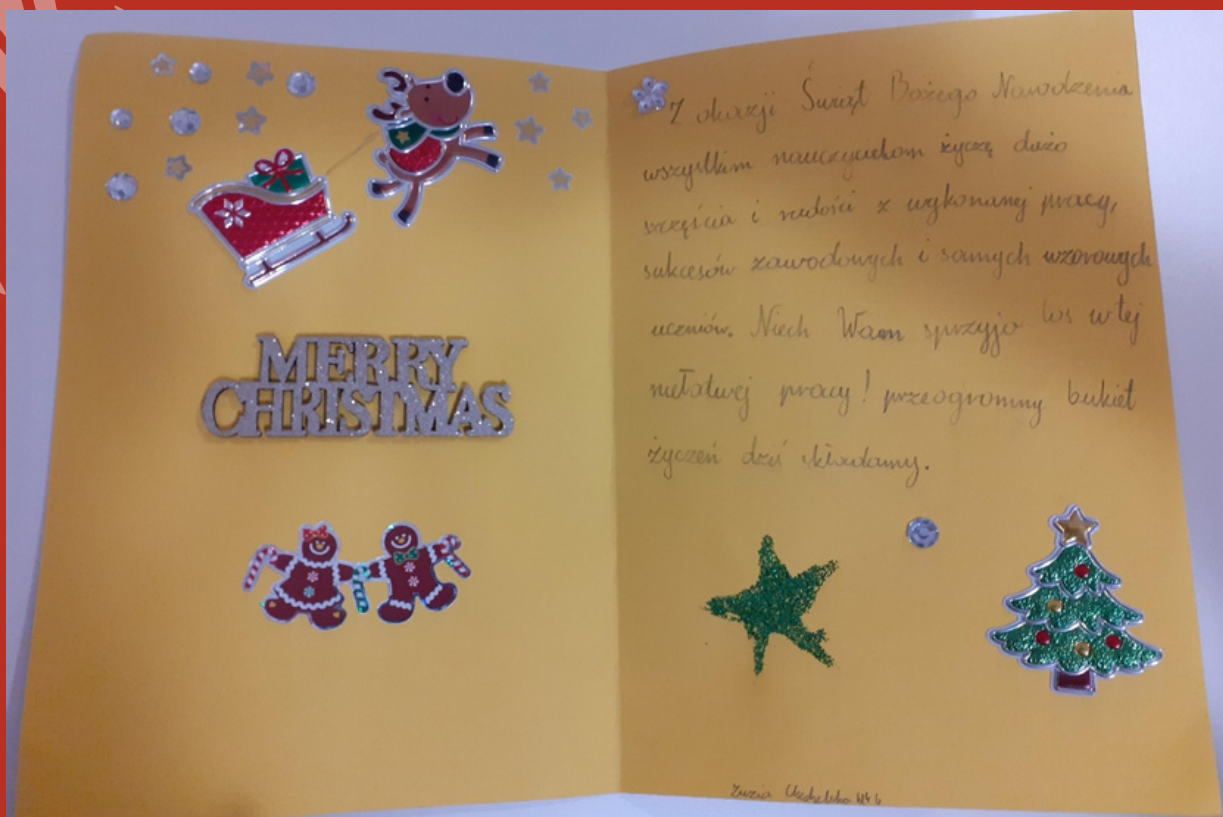 MERRY
CHRISTMAS
Z okazji Świąt Bożego Narodzenia
wszystkim nauczycielom życzę dużo
szczęścia i radości z wykonanej pracy,
sukcesów zawodowych i samych wzorowych
uczniów. Niech Wam sprzyja los w tej
niełatwej pracy! przeogromny bukiet
życzeń dziś składamy.
Zuzia